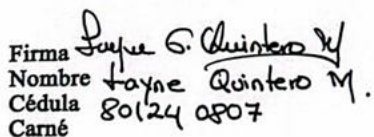 Firma Jayne G. Quintero M
Nombre Jayne Quintero M.
Cédula 801240807
Carné